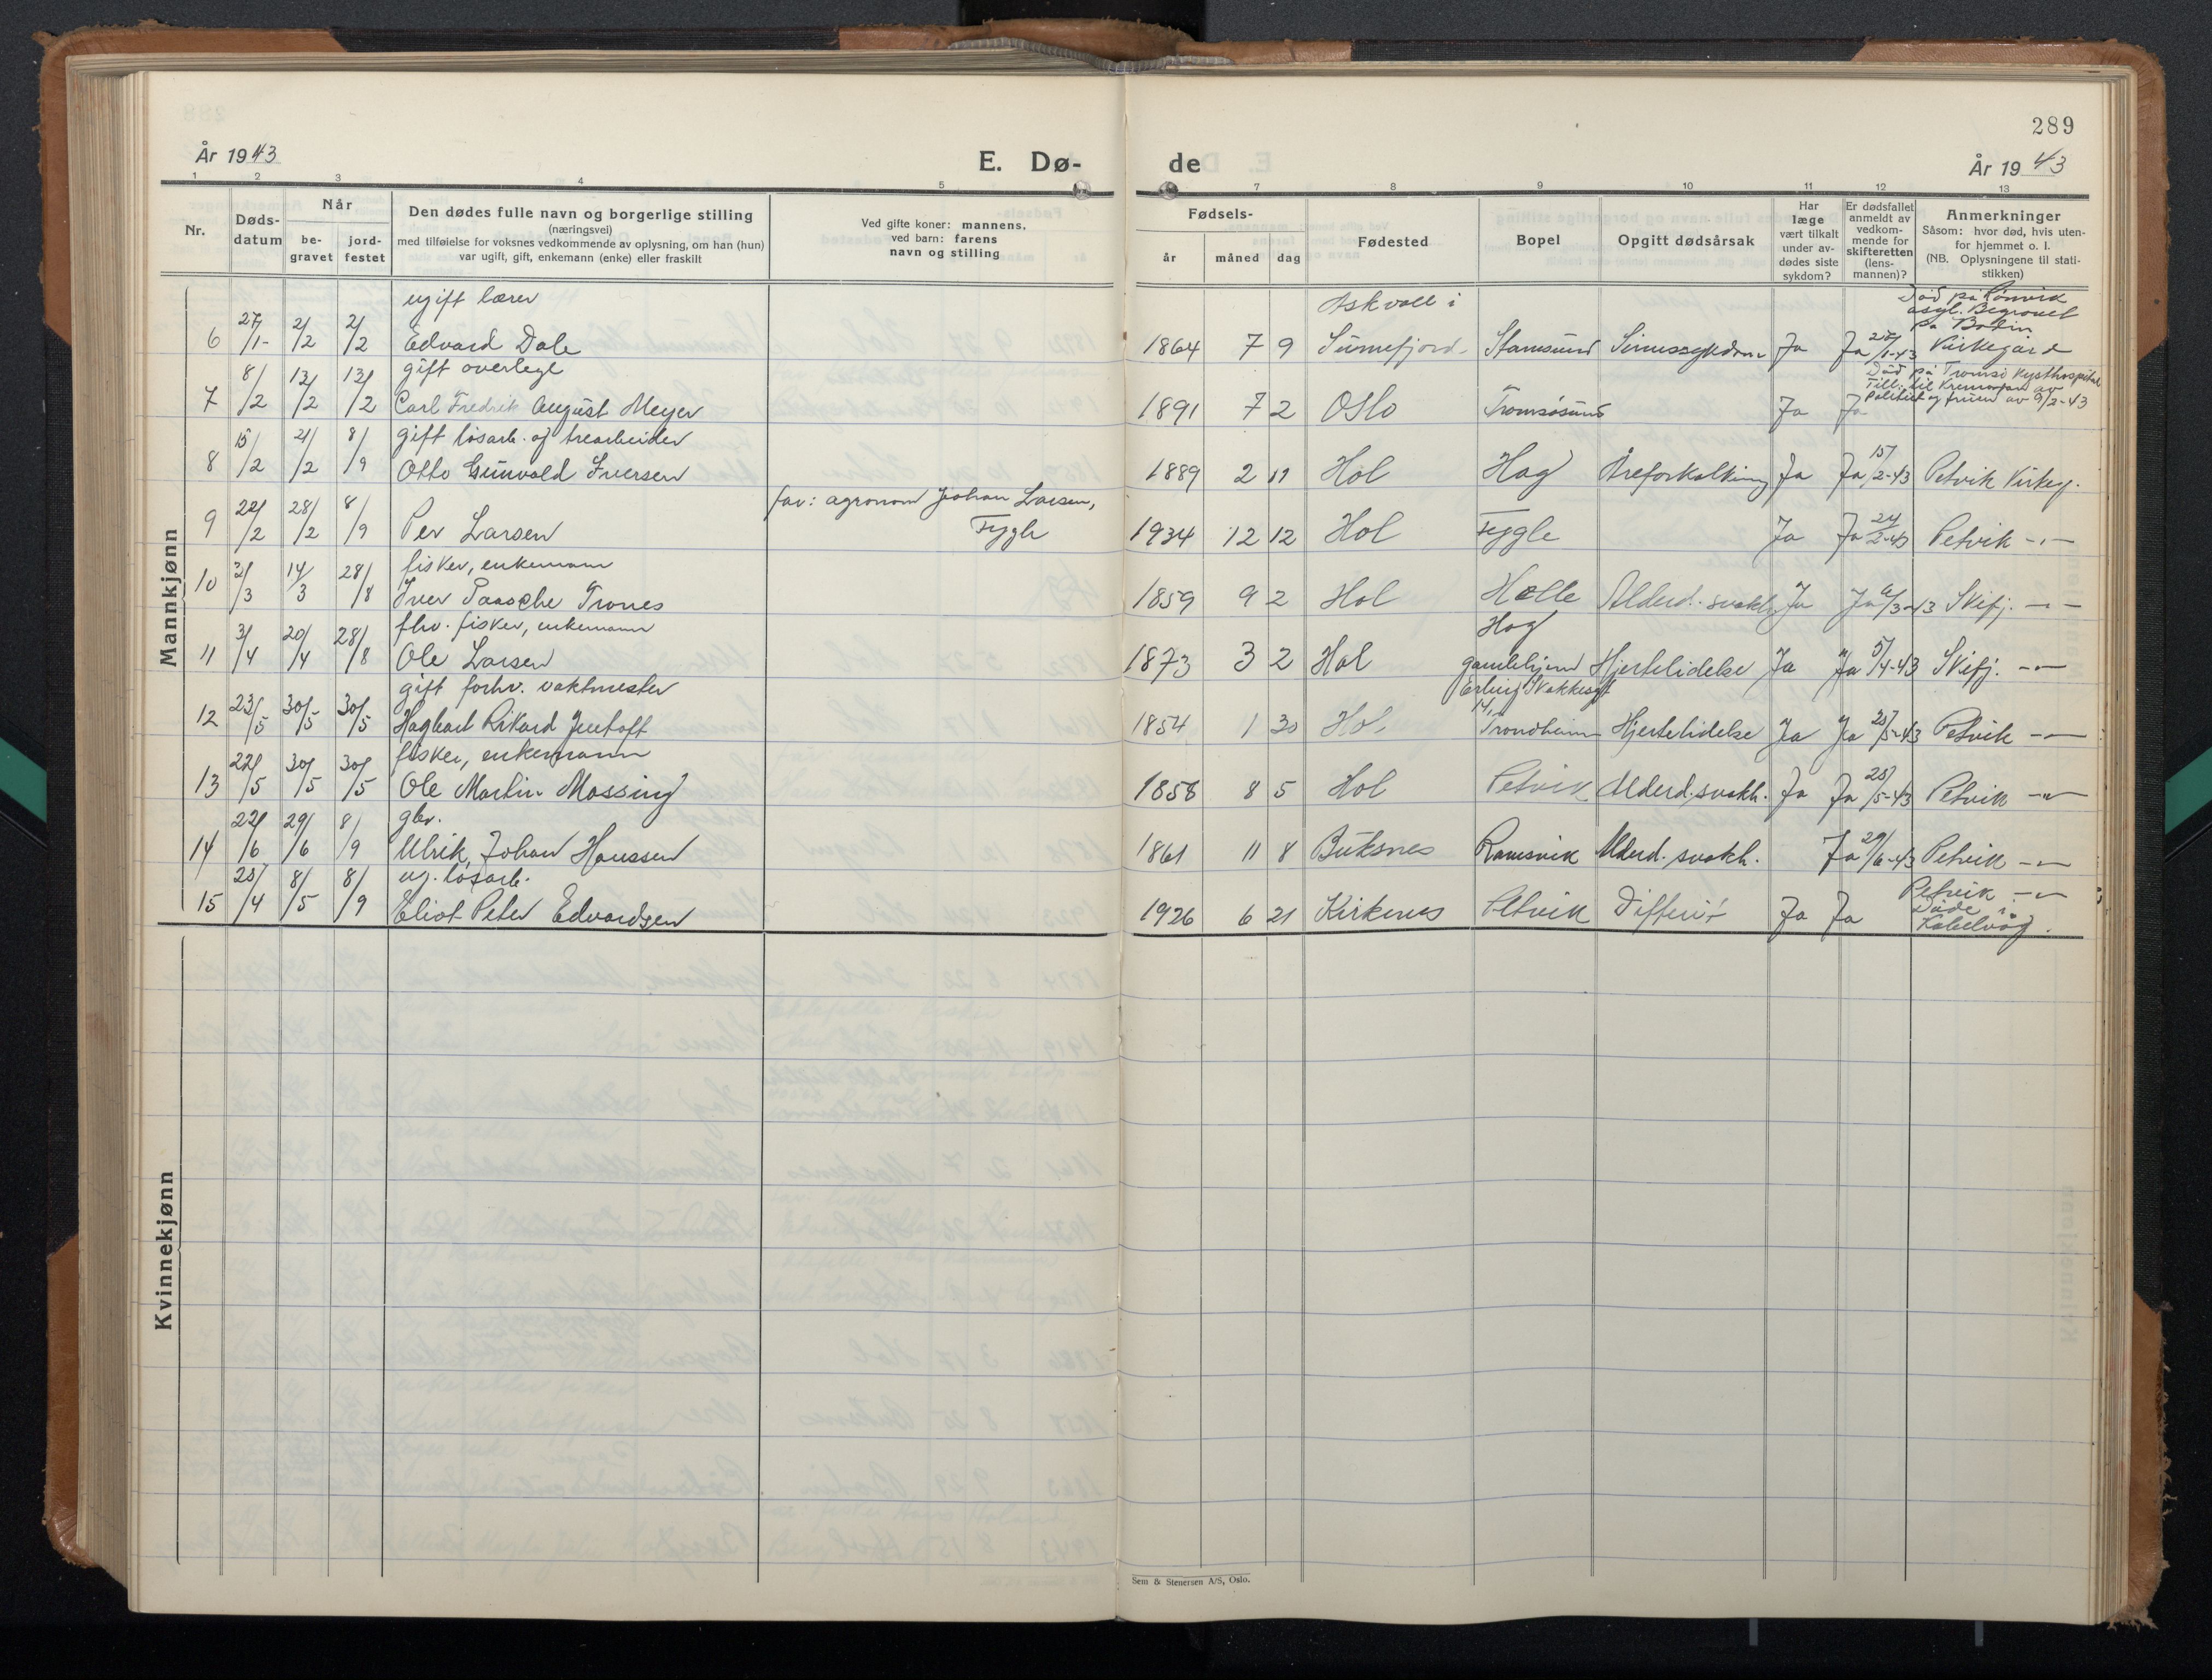 289
År 1943
E. Dø-
de
År 1943
1 2 3 4 5 7 8 9 10 11 12 13
Nr.
Døds-
datum
Når
be-
gravet
jord-
festet
Den dødes fulle navn og borgerlige stilling
(næringsvei)
med tilføielse for voksnes vedkommende av oplysning, om han (hun)
var ugift, gift, enkemann (enke) eller fraskilt
Ved gifte koner: mannens,
ved barn: farens
navn og stilling
Fødsels-
år måned dag
Fødested
Bopel
Opgitt dødsårsak
Har
læge
vært tilkalt
under av-
dødes siste
sykdom?
Er dødsfallet
anmeldt av
vedkom-
mende for
skifteretten
(lens-
mannen)?
Anmerkninger
Såsom: hvor død, hvis uten-
for hjemmet o. l.
(NB. Oplysningene til stati-
stikken)
Mannkjønn
ugift lærer Askvoll i Død på Rønvik
asyl. Begravet
på Bodin
6 27/1- 2/2 2/2 Edvard Dale 1864 7 9 Sunnfjord Stamsund Sinnssykdom Ja Ja Kirkegård
gift overlege Død på Tromsø Kysthospital
7 8/2 13/2 13/2 Carl Fredrik August Meyer 1891 7 2 Oslo Tromsøsund Ja Ja
gift løsarb. og trearbeider
8 15/2 21/2 8/9 Otto Gunvald Iversen 1889 2 11 Hol Hag Åreforkalkning Ja Ja 15/2-43 Petvik Kirkeg.
far: agronom Johan Larsen,
9 22/2 28/2 8/9 Per Larsen Fygle 1934 12 12 Hol Fygle Ja Ja 24/2-43 Petvik -"-
fisker, enkemann
10 2/3 14/3 28/8 Iver Paasche Trones 1859 9 2 Hol Holle Alderd. svakh. Ja Ja 6/3-43 Skifj. -"-
fhv. fisker, enkemann Hag
11 3/4 20/4 28/8 Ole Larsen 1873 3 2 Hol gamlehjem Hjertelidelse Ja Ja 5/4-43 Skifj. -"-
gift forhv. vaktmester Erling Skakkesgt
14,
12 23/5 30/5 30/5 Hagbart Rikard Jentoft 1854 1 30 Hol Trondheim Hjertelidelse Ja Ja 25/5-43 Petvik -"-
fisker, enkemann
13 22/5 30/5 30/5 Ole Martin Mossing 1858 8 5 Hol Petvik Alderd. svakh. Ja Ja 25/5-43 Petvik -"-
gbr.
14 22/6 29/6 8/9 Ulrik Johan Hanssen 1861 11 8 Buksnes Ramsvik Alderd. svakh. Ja 29/6-43 Petvik -"-
ug. løsarb. Petvik -"-
15 25/4 8/5 8/9 Eliot Peter Edvardsen 1926 6 21 Kirkenes Petvik Difteri Ja Ja Døde i
Kabelvåg.
Kvinnekjønn
Sem & Stenersen A/S, Oslo.